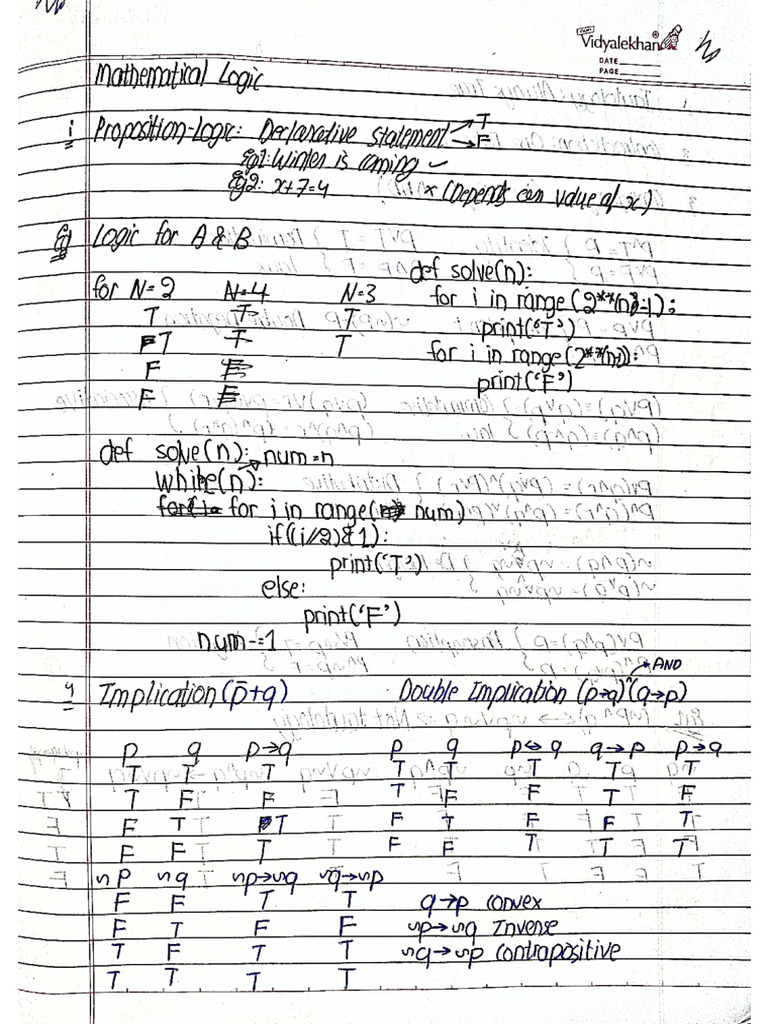 Vidyalekhan
DATE
PAGE
Mathematical Logic
i Proposition-Logic: Declarative statement → T
→ F
Eg1: Winter is coming ✓
Eg2: x+7=4 × (Depends on value of x)
Eg Logic for A & B
def solve(n):
for N=2 N=4 N=3 for i in range(2**(n)-1):
T T T print('T')
T T T for i in range(2**(n)):
F F print('F')
F F
def solve(n): num=n
while(n):
for i in range(num)
if((i//2)&1):
print('T')
else:
print('F')
num-=1
→ AND
4 Implication (p̄+q) Double Implication (p→q)^(q→p)
p q p→q p q p↔q q→p p→q
T T T T T T T T
T F F T F F T F
F T T F T F F T
F F T F F T T T
~p ~q ~p→~q ~q→~p
F F T T q→p convex
F T F F ~p→~q Inverse
T F T T ~q→~p Contrapositive
T T T T